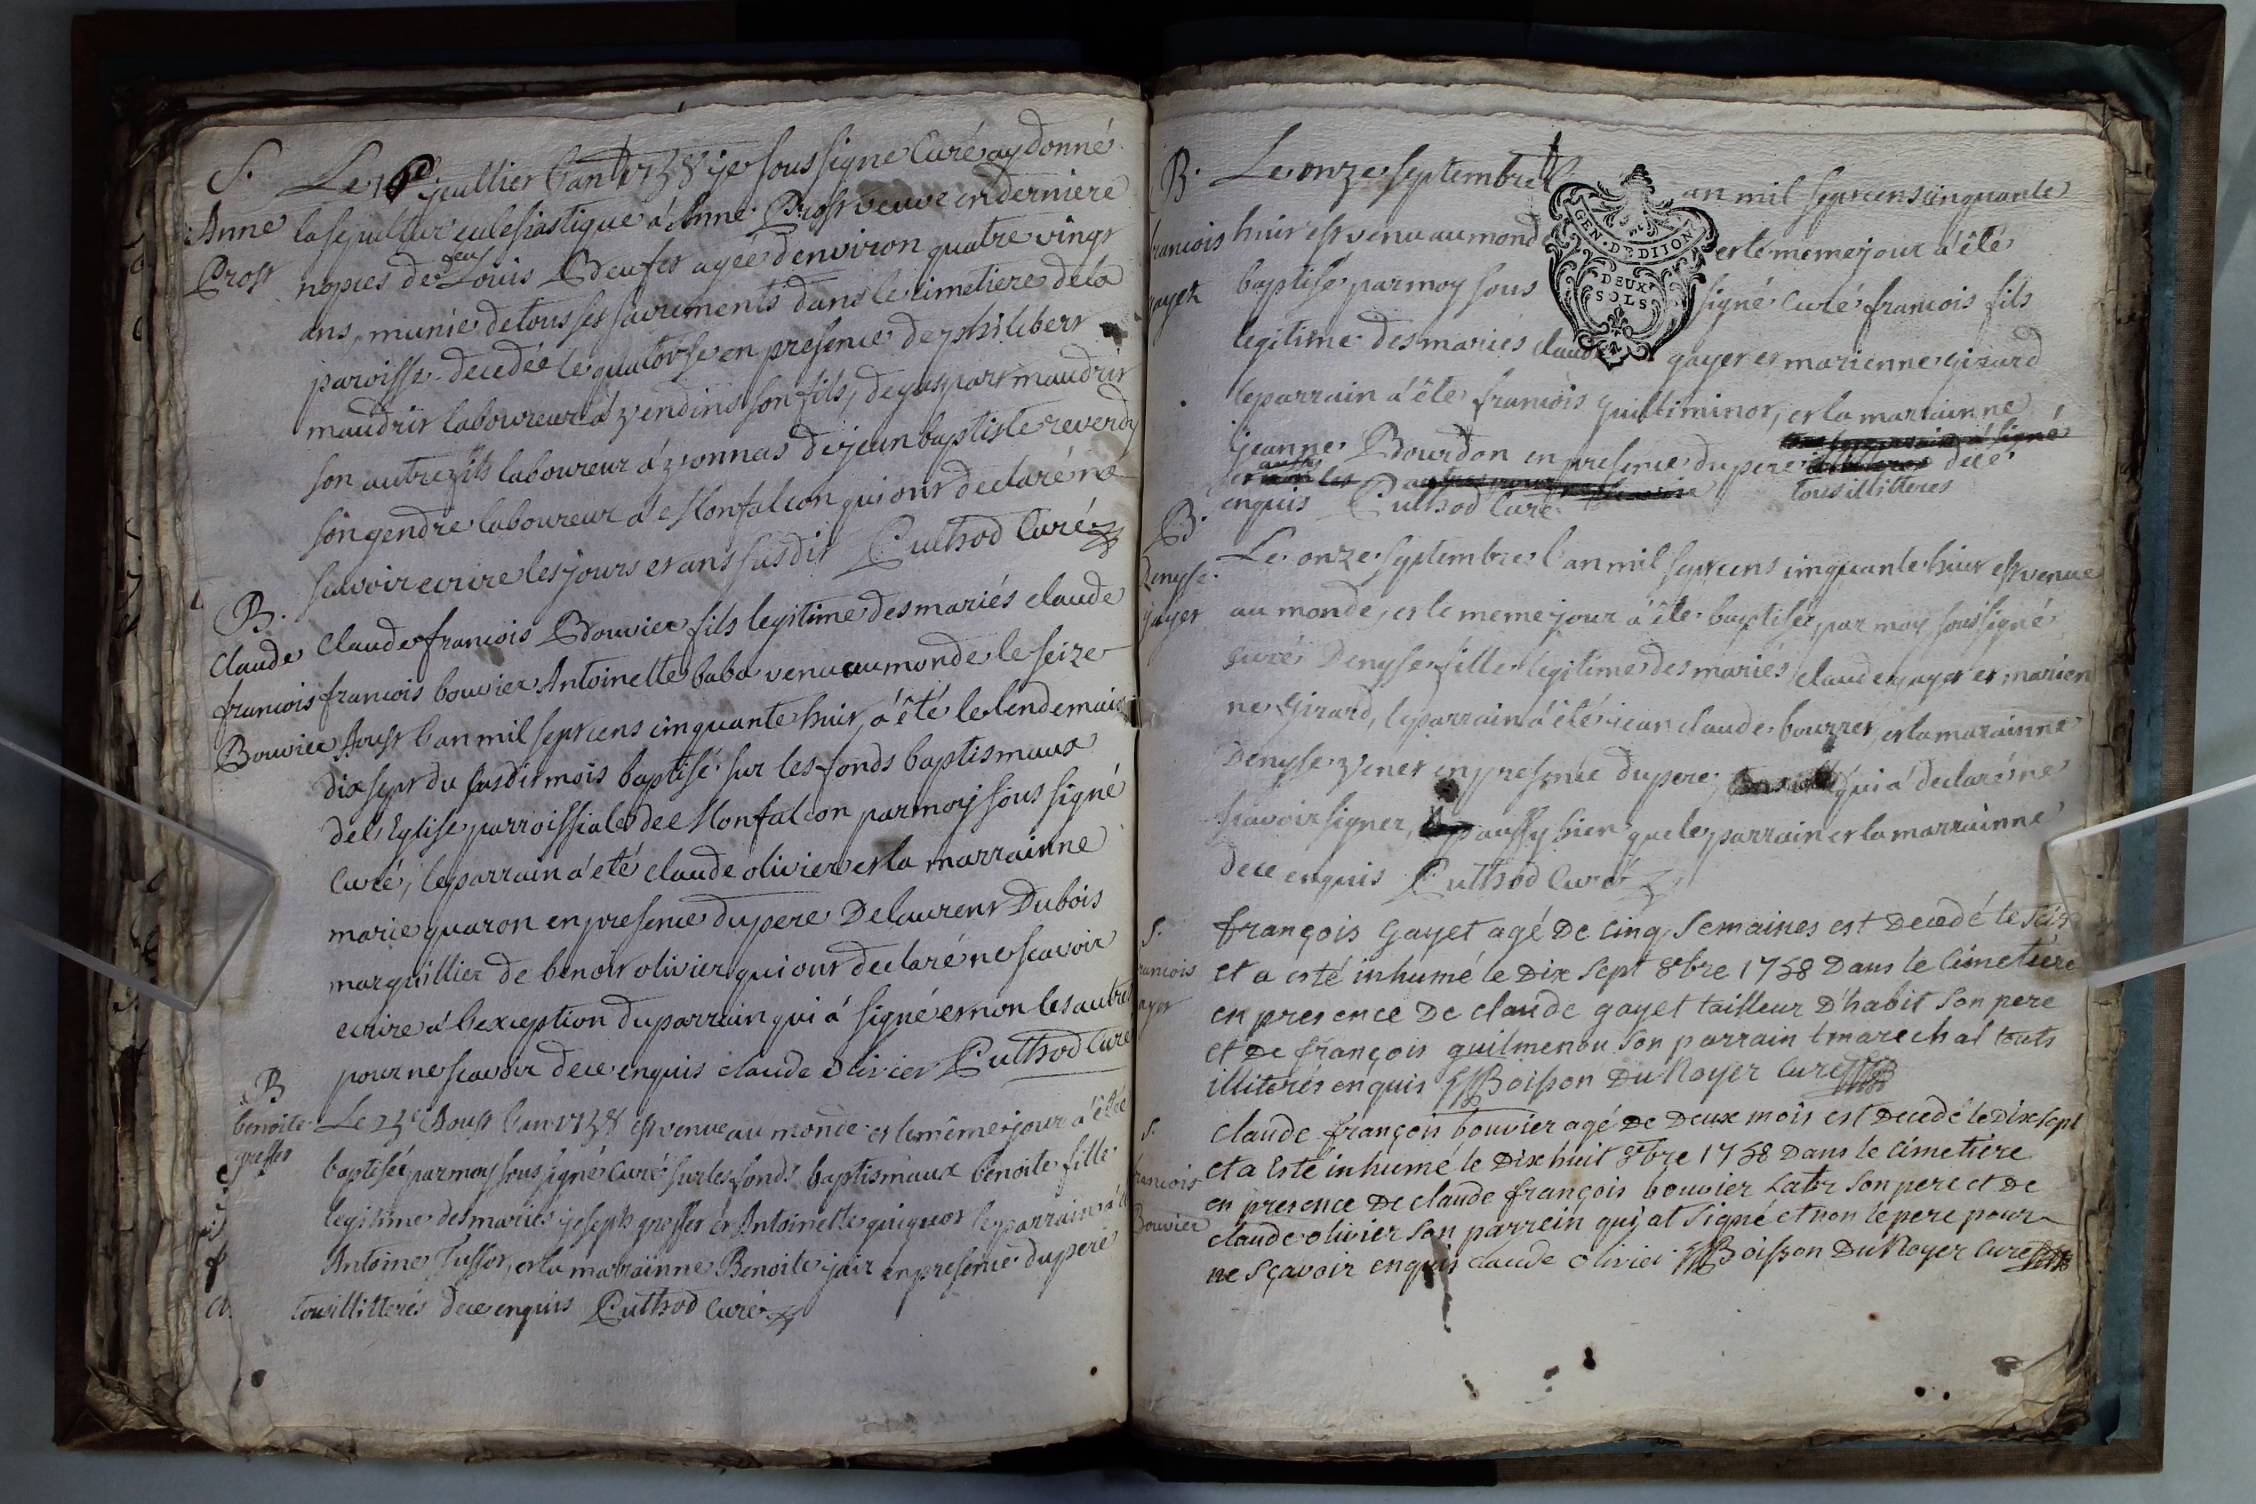 S.
Anne
Prost
Le juillier l'an 1758 je sous signé Curé ay donné
la sepulture eclesiastique á Anne Prost veuve en derniere
nopces de feu Louis agée d'environ quatre vingt
ans, munie de tous ses sacrements dans le cimetiere de la
paroisse decedée le quatorse en presence de philibert
maudrit laboureur á son fils, de gaspart maudrit
son autre fils laboureur á de jean baptiste reverdy
son gendre laboureur á Monfalcon qui ont declaré ne
scavoir ecrire les jours et ans susdit Puthod Curé
B.
Claude
francois
Bouvier
Claude francois Bouvier fils legitime des mariés claude
francois bouvier Antoinette baba venu au monde le seize
Aoust l'an mil sept cens cinquante huit, á été le lendemain
dix sept du susdit mois baptisé sur les fonds baptismaux
de l'Eglise parroissiale de Monfalcon par moy sous signé
Curé, le parrain á eté claude olivier et la marrainne
marie quaron en presence du pere De laurent Dubois
marguillier de benoit olivier qui ont declaré ne scavoir
ecrire á l'exception du parrain qui á signé et non les autres
pour ne scavoir de ce enquis claude olivier Puthod Curé
B
benoite
Le 23e Aoust l'an 1758 est venue au monde et le même jour á été
baptisée par moy sous signé Curé sur les fonds baptismaux benoite fille
legitime des mariés joseph et Antoinette guiguot le parrain á
Antoine et la marrainne Benoite en presence du pere
tous illitterés de ce enquis Puthod Curé
B.
francois
gayet
Le onze septembre l'an mil sept cens cinquante
huit est venu au monde et le meme jour á été
GEN. DE DIJON
DEUX
SOLS
baptisé par moy sous signé Curé francois fils
legitime des mariés claude gayet et marienne girard
le parrain á été francois guilliminot, et la marrainne
jeanne Bourdon en presence du pere de ce
tous illitteres
enquis Puthod Curé
B.
Denyse
gayet
Le onze septembre l'an mil sept cens cinquante huit est venue
au monde, et le meme jour á été baptisée par moy sous signé
curé Denyse fille legitime des mariés claude gayet et marien
ne Girard, le parrain á été jean claude bourret, et la marainne
Denyse en presence du pere, qui á declaré ne
scavoir signer, aussy bien que le parrain et la marrainne
de ce enquis Puthod Curé
S.
francois
gayet
françois Gayet agé De Cinq Semaines est Decedé le Seize
et a esté inhumé le Dix Sept 8bre 1758 Dans le Cimetiere
en presence De claude gayet tailleur D'habit Son pere
et De françois guilmenou Son parrain marechal touts
illiterés enquis Boisson Du Noyer Curé
S.
francois
Bouvier
claude françois bouvier agé De Deux mois est Decedé le Dix sept
et a Esté inhumé le Dix huit 8bre 1758 Dans le Cimetiere
en presence De claude françois bouvier Labr Son pere et De
claude olivier Son parrein qui at Signé et non le pere pour
ne Sçavoir enquis claude olivier Boisson Du Noyer Curé